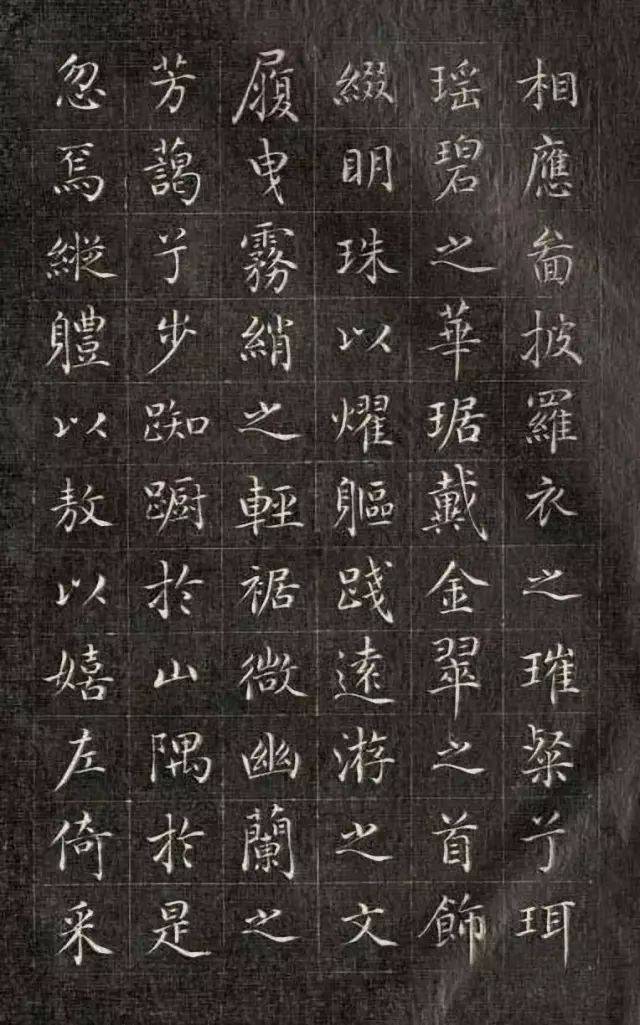 相應啚披羅衣之璀粲兮珥
瑶碧之華琚戴金翠之首飾
綴眀珠以燿軀踐遠游之文
履曳霧綃之輕裾微幽蘭之
芳藹兮步踟蹰於山隅於是
忽焉縱軆以敖以嬉左倚采